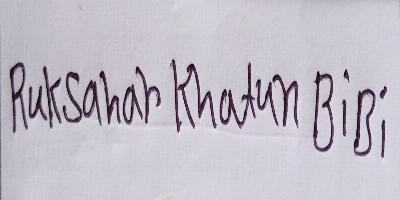 Ruksahah Khatun BiBi